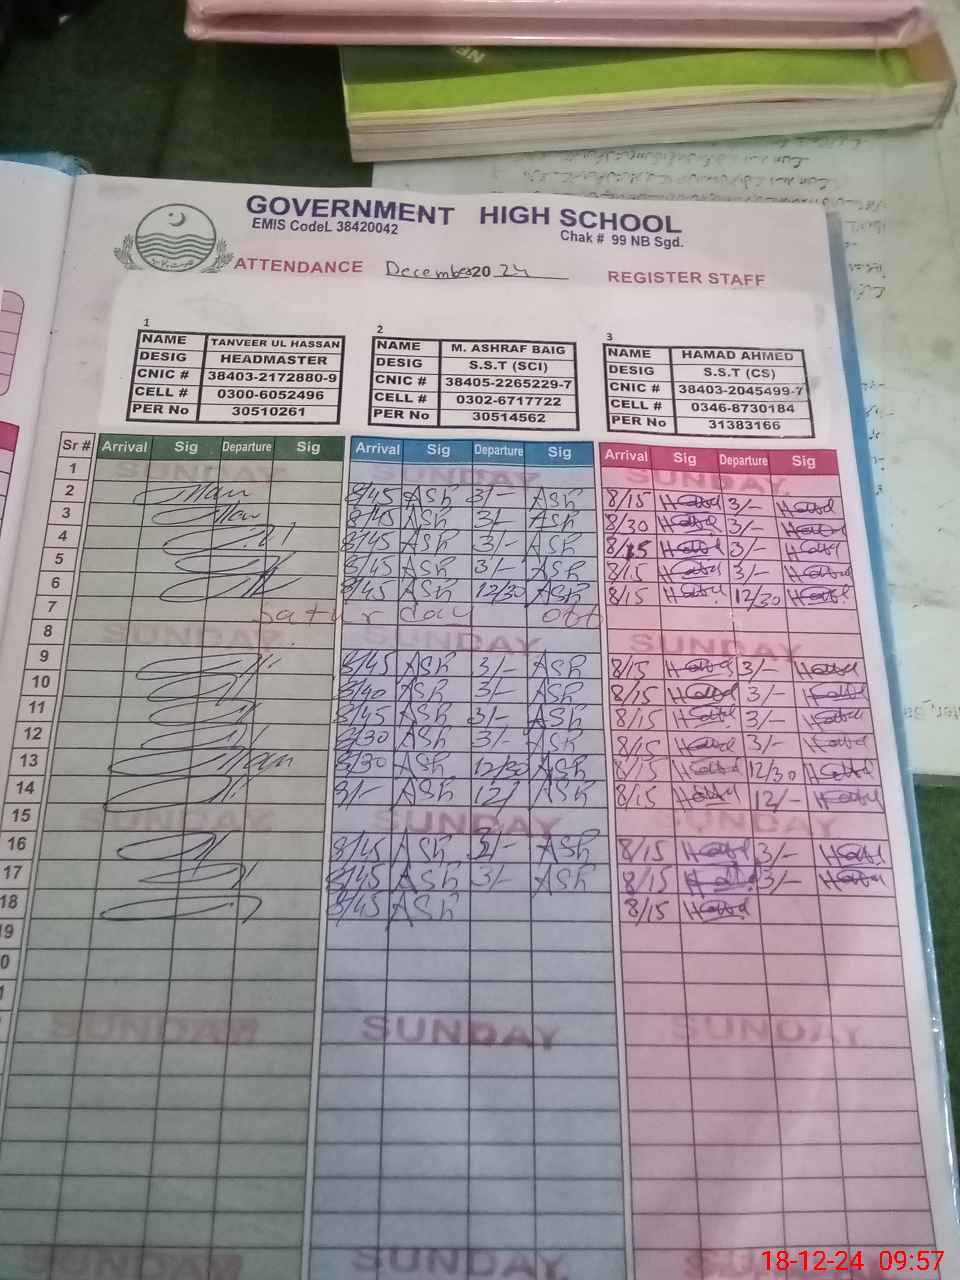 GOVERNMENT HIGH SCHOOL
EMIS CodeL 38420042 Chak # 99 NB Sgd.
ATTENDANCE December 2024 REGISTER STAFF
1 2 3
NAME TANVEER UL HASSAN NAME M. ASHRAF BAIG NAME HAMAD AHMED
DESIG HEADMASTER DESIG S.S.T (SCI) DESIG S.S.T (CS)
CNIC # 38403-2172880-9 CNIC # 38405-2265229-7 CNIC # 38403-2045499-7
CELL # 0300-6052496 CELL # 0302-6717722 CELL # 0346-8730184
PER No 30510261 PER No 30514562 PER No 31383166
Sr # Arrival Sig Departure Sig Arrival Sig Departure Sig Arrival Sig Departure Sig
1 SUNDAY SUNDAY SUNDAY
2 8/45 ASh 3/- ASh 8/15 3/-
3 8/45 ASh 3/- ASh 8/30 3/-
4 8/45 ASh 3/- ASh 8/15 3/-
5 8/45 ASh 3/- ASh 8/15 3/-
6 8/45 ASh 12/30 ASh 8/15 12/30
7 Saturday off
8 SUNDAY SUNDAY SUNDAY
9 8/45 ASh 3/- ASh 8/15 3/-
10 8/40 ASh 3/- ASh 8/15 3/-
11 8/45 ASh 3/- ASh 8/15 3/-
12 8/30 ASh 3/- ASh 8/15 3/-
13 8/30 ASh 12/30 ASh 8/15 12/30
14 ASh 12/ ASh 8/15 12/-
15 SUNDAY SUNDAY SUNDAY
16 8/45 ASh 3/- ASh 8/15 3/-
17 8/45 ASh 3/- ASh 8/15 3/-
18 8/45 ASh 8/15
19
SUNDAY SUNDAY SUNDAY
SUNDAY SUNDAY SUNDAY
18-12-24 09:57